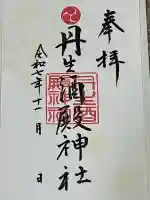 奉拝
丹生酒殿神社
令和七年十一月 日